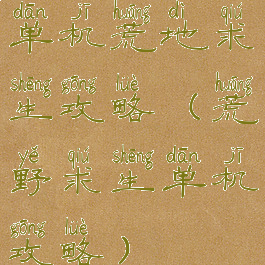 dān jī huāng dì qiú
单机荒地求
shēng gōng lüè huāng
生攻略（荒
yě qiú shēng dān jī
野求生单机
gōng lüè
攻略）